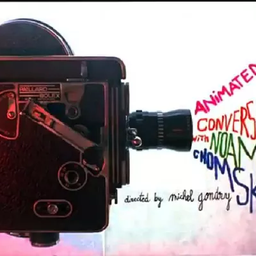 PAILLARD
BOLEX
ANIMATED
CONVERS
with NOAM
CHOMSK
directed by michel gondry